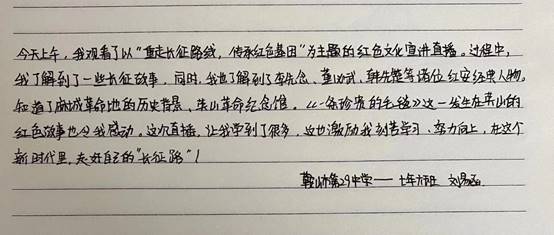 今天上午，我观看了以“重走长征路线，传承红色基因”为主题的红色文化宣讲直播。过程中，
我了解到了一些长征故事，同时，我也了解到了李先念、董必武、韩先楚等诸位红安经典人物。
知道了鹿城革命地的历史背景、英山革命纪念馆。《一条珍贵的毛毯》这一发生在英山的
红色故事也令我感动。这次直播，让我学到了很多，这也激励我刻苦学习、努力向上，在这个
新时代里，走好自己的“长征路”！
鞍山市第29中学——七年六班 刘易函